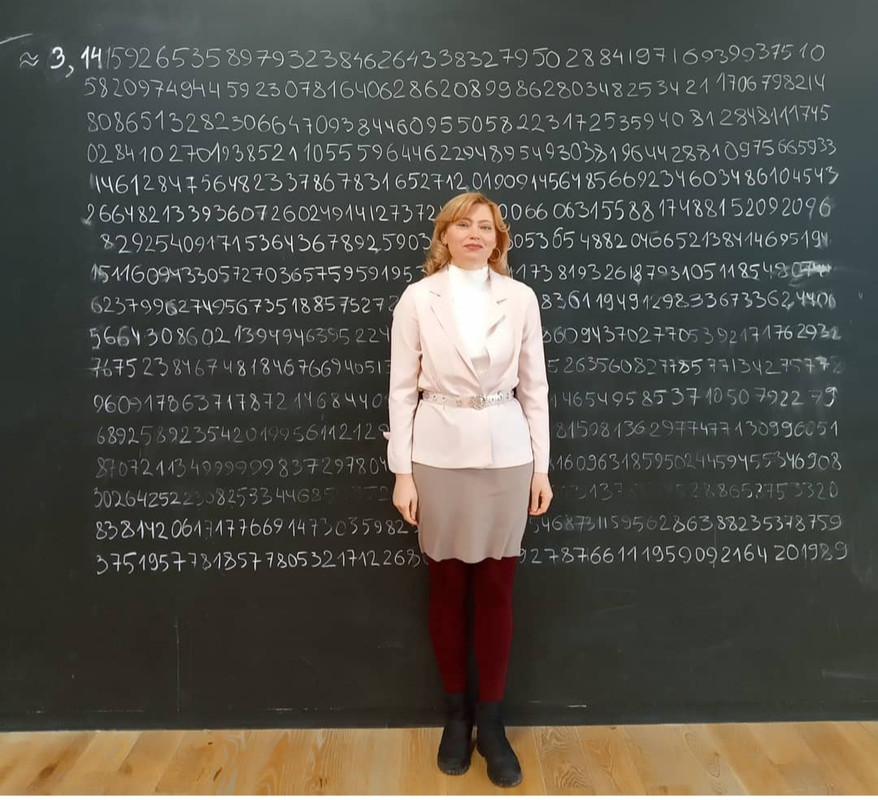 ≈ 3,14159265358979323846264338327950288419716939937510
582097494459230781640628620899862803482534211706798214
808651328230664709384460955058223172535940812848111745
0284102701938521105559644622948954930381964428810975665933
1461284756482337867831652712019091456485669234603486104543
2664821339360726024914127372 0066063155881748815209 2096
8292540917153643678925903 053054882046652138414695194
15116094330572703657595919 1738193261879310511854
6237996274956735188575272 8361194912983367336244
56643086021394946395224 6094370277053921717629
767523846748184676694051 52635608277857713427577
960917363717872146844 0 1465495853710507922 79
6892589235420199561121 2 815981362977477130996051
870721134999999837297804 160963185950244594553469 08
838142061717766914730359 82 546873115956286388235378759
3751957781857780532171226 8 2787661119590921642 01989